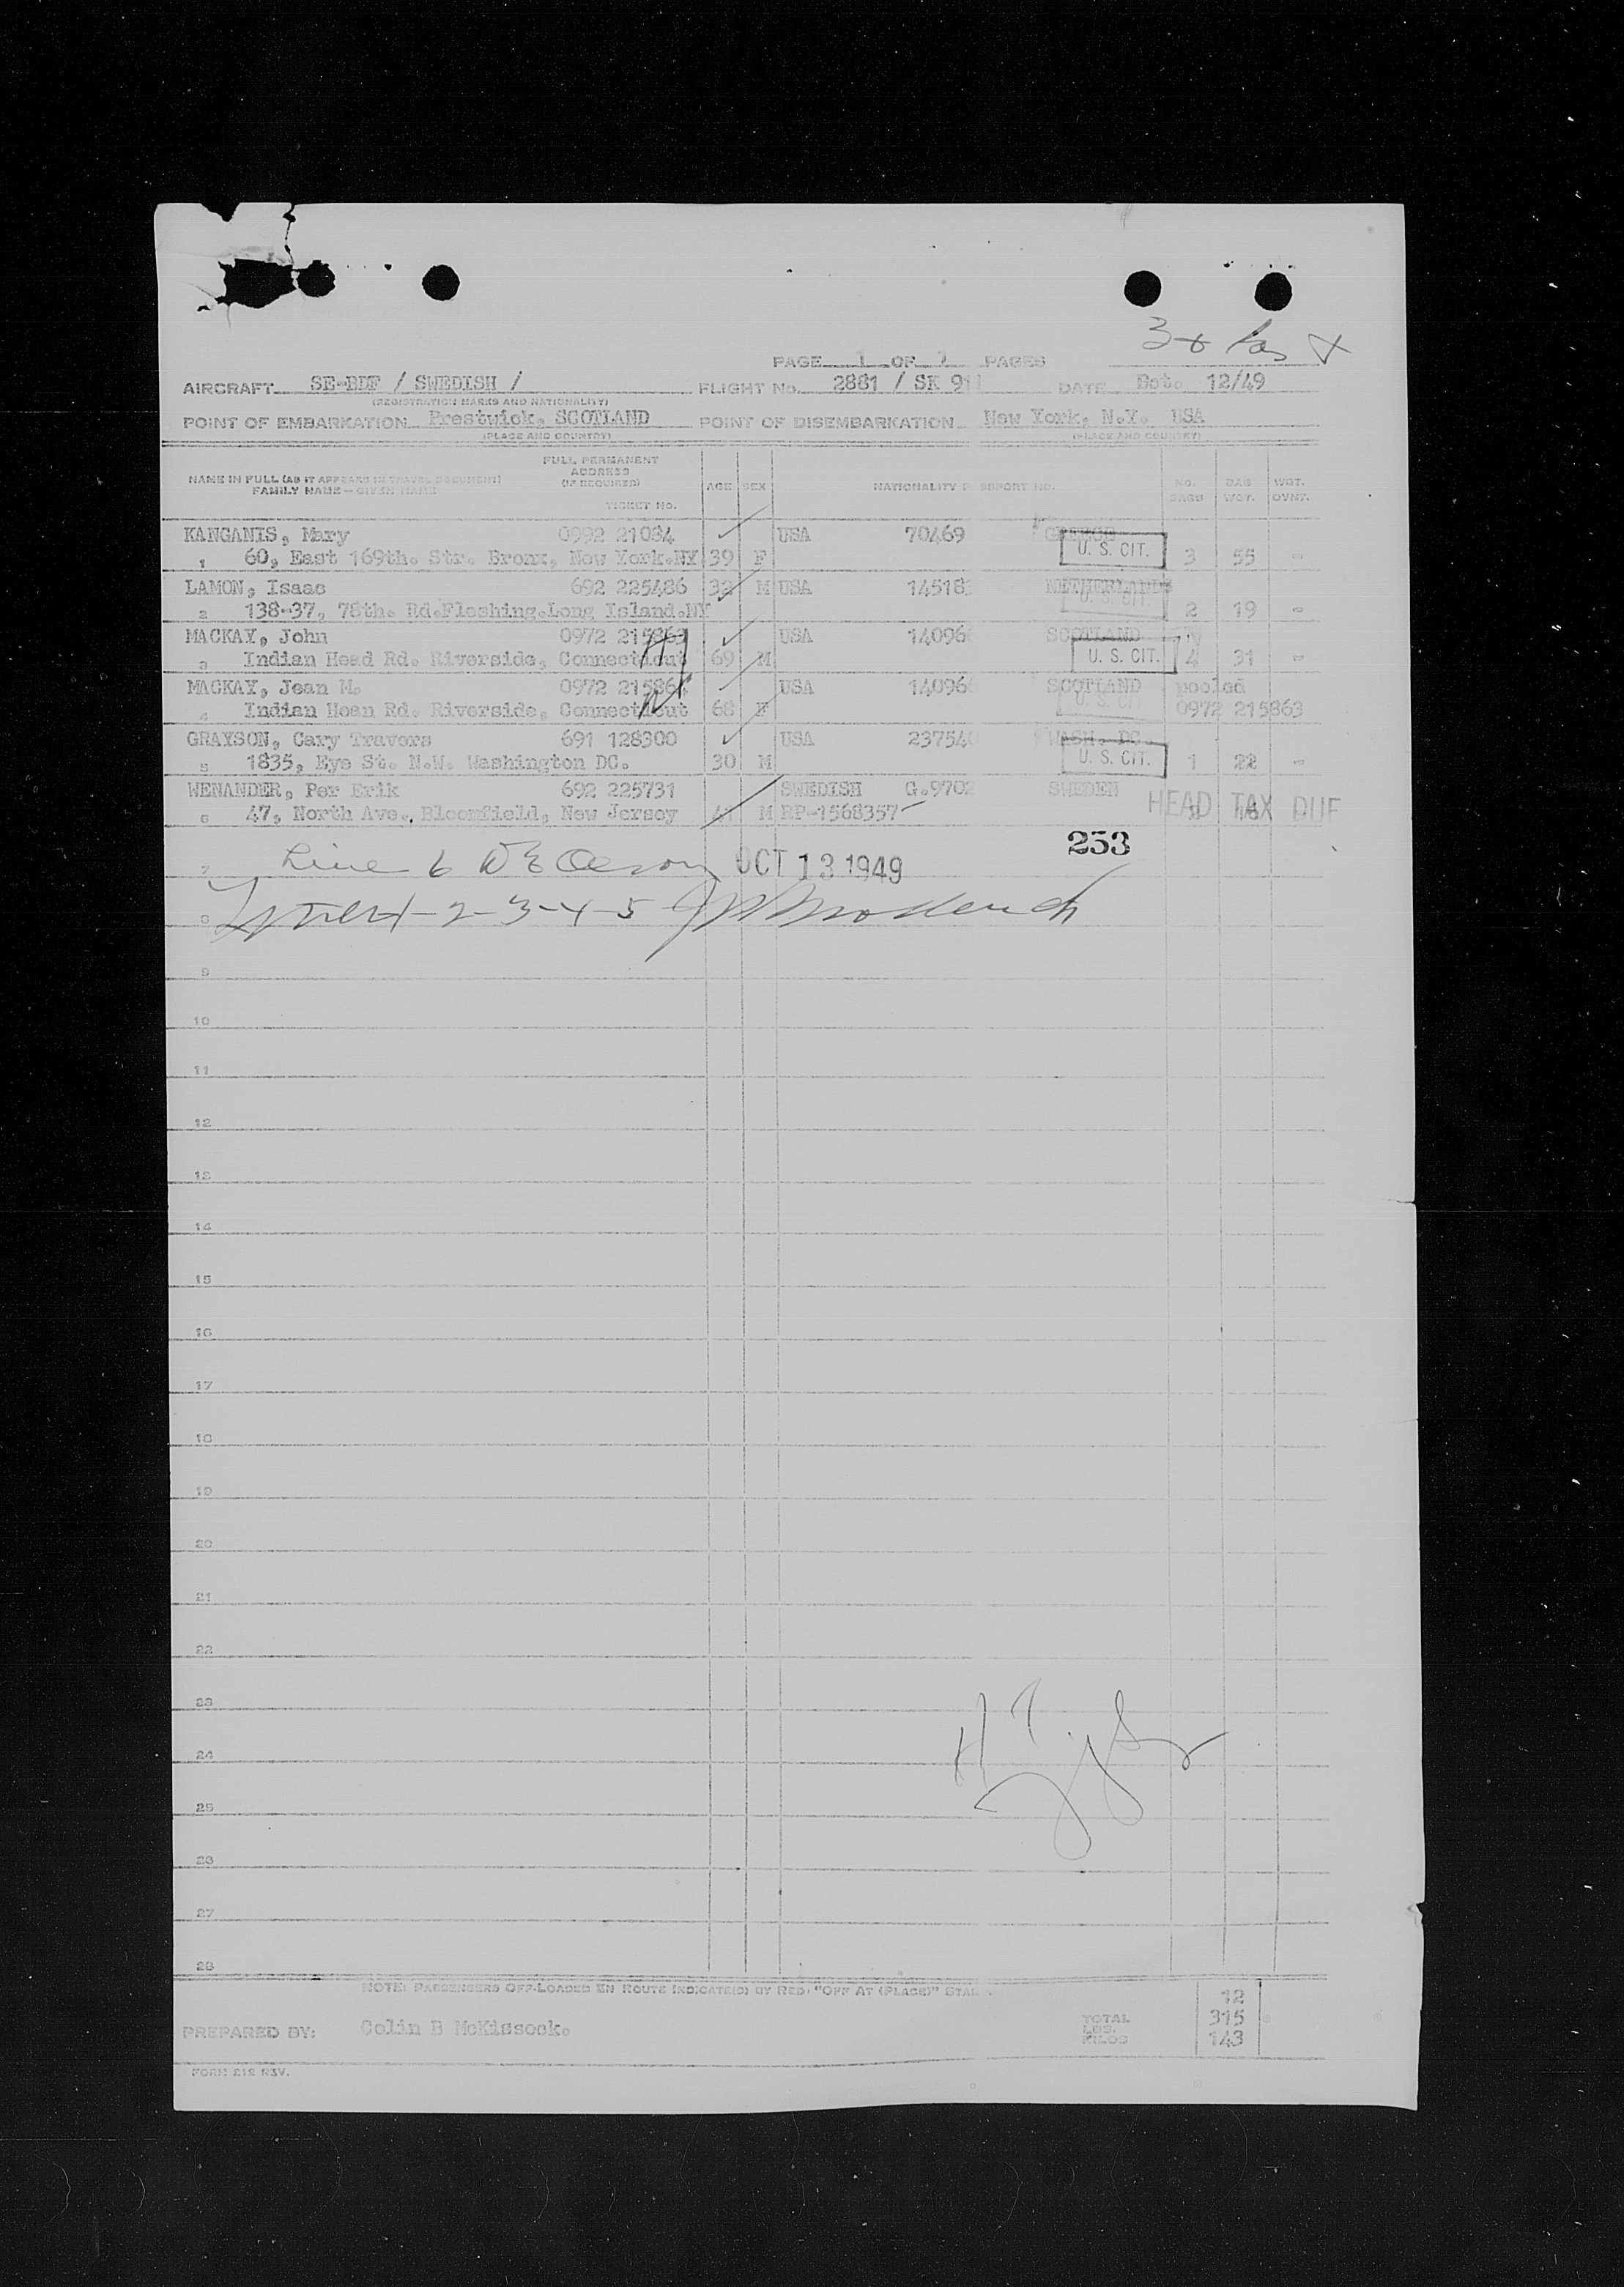 PAGE 1 OF PAGES
AIRCRAFT SE-BDF / SWEDISH / FLIGHT No. 2881 / SK 911 DATE Oct. 12/49
(REGISTRATION MARKS AND NATIONALITY)
POINT OF EMBARKATION Prestwick, SCOTLAND POINT OF DISEMBARKATION New York, N.Y. USA
(PLACE AND COUNTRY) (PLACE AND COUNTRY)
NAME IN FULL (AS IT APPEARS IN TRAVEL DOCUMENT) FAMILY NAME — GIVEN NAME FULL PERMANENT ADDRESS (IF REQUIRED) TICKET No. AGE SEX NATIONALITY P SSPORT NO. NO. BAGS BAG WGT. WGT. OVWT.
KANGANIS, Mary 0992 21084 USA 70469 GREECE
1 60, East 169th. Str. Bronx, New York.NY 39 F U. S. CIT. 3 55 -
LAMON, Isaac 692 225486 32 M USA 14518 NETHERLANDS
2 138-37, 78th. Rd.Floshing.Long Island.NY U. S. CIT. 2 19 -
MACKAY, John 0972 215863 USA 14096 SCOTLAND
3 Indian Head Rd. Riverside, Connecticut 69 M U. S. CIT. 4 31 -
MACKAY, Jean M. 0972 215864 USA 14096 SCOTLAND pooled
4 Indian Hoan Rd. Riverside, Connecticut 68 F U. S. CIT 0972 215863
GRAYSON, Cary Travers 691 128300 USA 23754 WASH. DC.
5 1835, Eye St. N.W. Washington DC. 30 M U. S. CIT. 1 22 -
WENANDER, Per Erik 692 225731 SWEDISH G.9702 SWEDEN
6 47, North Ave., Bloomfield, New Jersey M RP-1568357 HEAD TAX DUE
253
7 Line 6 OCT 13 1949
8 1-2-3-4-5
9
10
11
12
13
14
15
16
17
18
19
20
21
22
23
24
25
26
27
28
NOTE: PASSENGERS OFF-LOADED EN ROUTE INDICATE(D) BY RED, "OFF AT (PLACE)" STAL
12
TOTAL LBS. 315
PREPARED BY: Colin B McKissock. KILOS 143
FORM 218 REV.